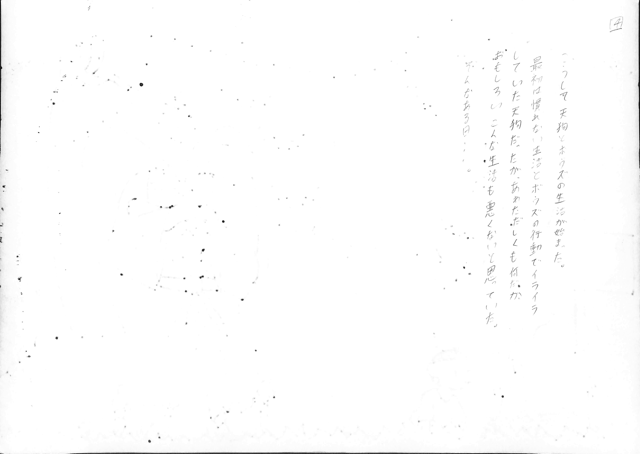 4
こうして天狗とボウズの生活が始まった。
最初は慣れない生活とボウズの行動でイライラ
していた天狗だったが、あわただしくも何だか
おもしろい、こんな生活も悪くないと思っていた。
そんなある日・・・。